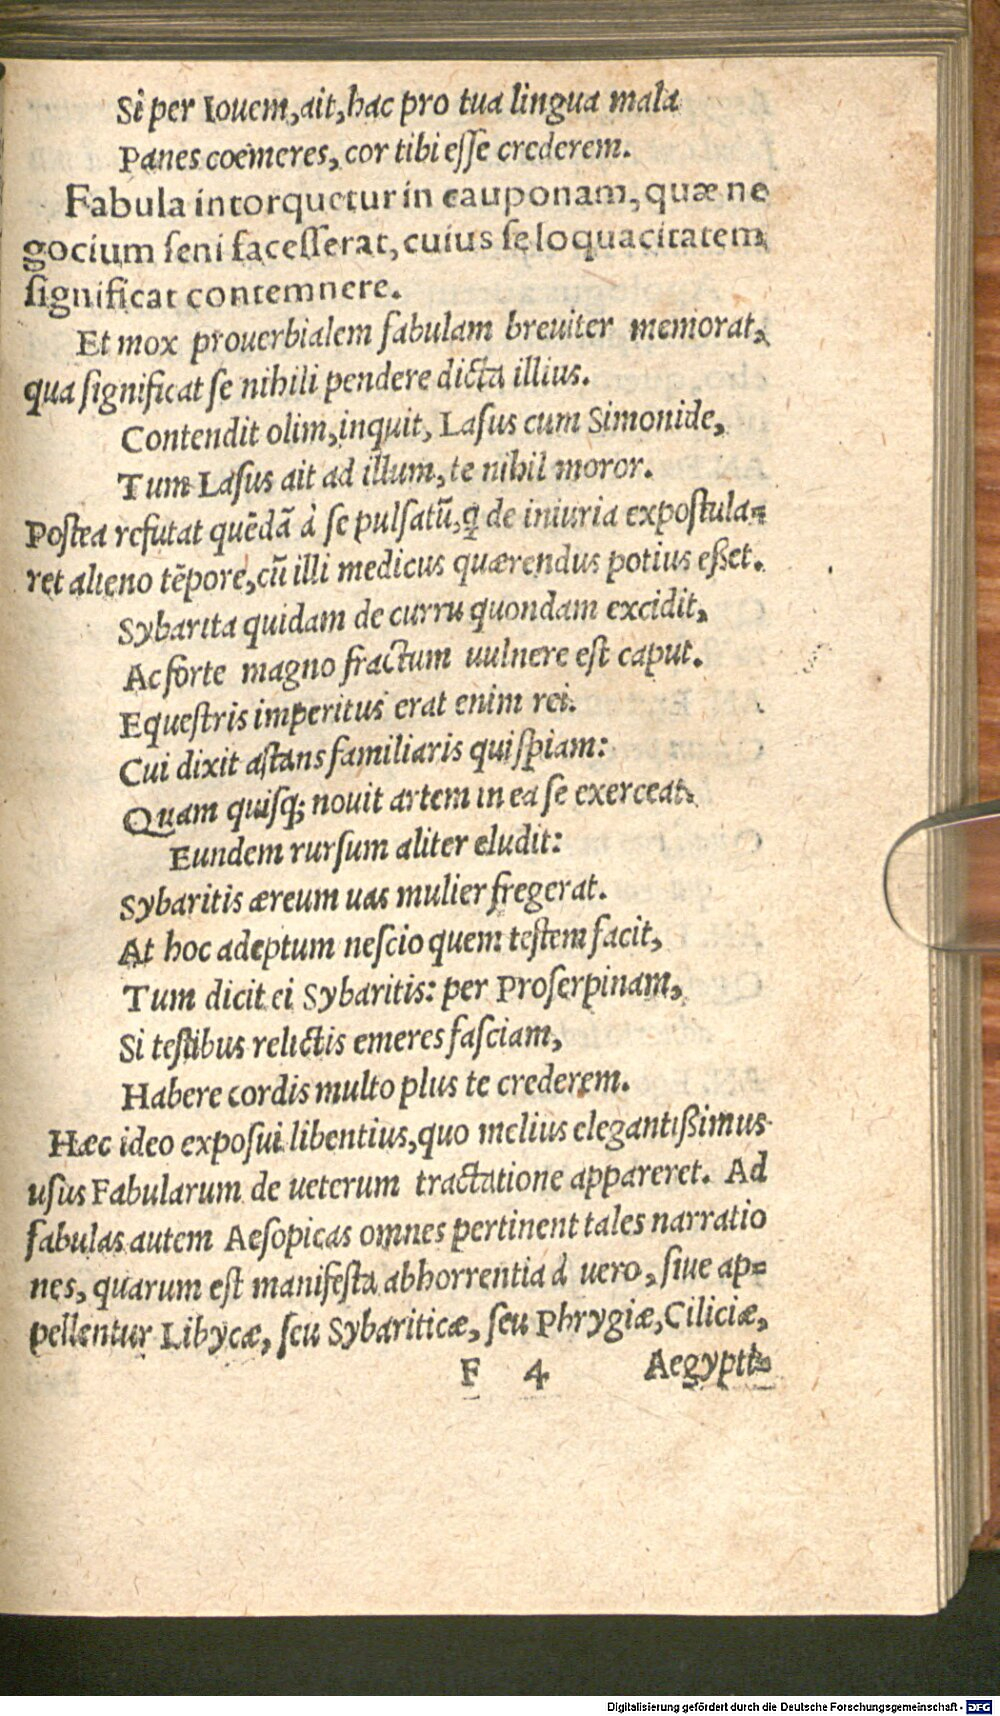 Si per Iouem, ait, hac pro tua lingua mala
Panes coemeres, cor tibi esse crederem.
Fabula intorquetur in cauponam, quæ ne
gocium seni facesserat, cuius se loquacitatem
significat contemnere.
Et mox prouerbialem fabulam breuiter memorat,
qua significat se nihili pendere dicta illius.
Contendit olim, inquit, Lasus cum Simonide,
Tum Lasus ait ad illum, te nihil moror.
Postea refutat quẽdã à se pulsatũ, ꝗ de iniuria expostula=
ret alieno tẽpore, cũ illi medicus quærendus potius esset.
Sybarita quidam de curru quondam excidit,
Ac forte magno fractum uulnere est caput.
Equestris imperitus erat enim rei.
Cui dixit astans familiaris quispiam:
Quam quisq; nouit artem in ea se exerceat.
Eundem rursum aliter eludit:
Sybaritis æreum uas mulier fregerat.
At hoc adeptum nescio quem testem facit,
Tum dicit ei Sybaritis: per Proserpinam,
Si testibus relictis emeres fasciam,
Habere cordis multo plus te crederem.
Hæc ideo exposui libentius, quo melius elegantißimus
usus Fabularum de ueterum tractatione appareret. Ad
fabulas autem Aesopicas omnes pertinent tales narratio
nes, quarum est manifesta abhorrentia à uero, siue ap=
pellentur Libycæ, seu Sybariticæ, seu Phrygiæ, Ciliciæ,
F 4 Aegypti=
Digitalisierung gefördert durch die Deutsche Forschungsgemeinschaft - DFG